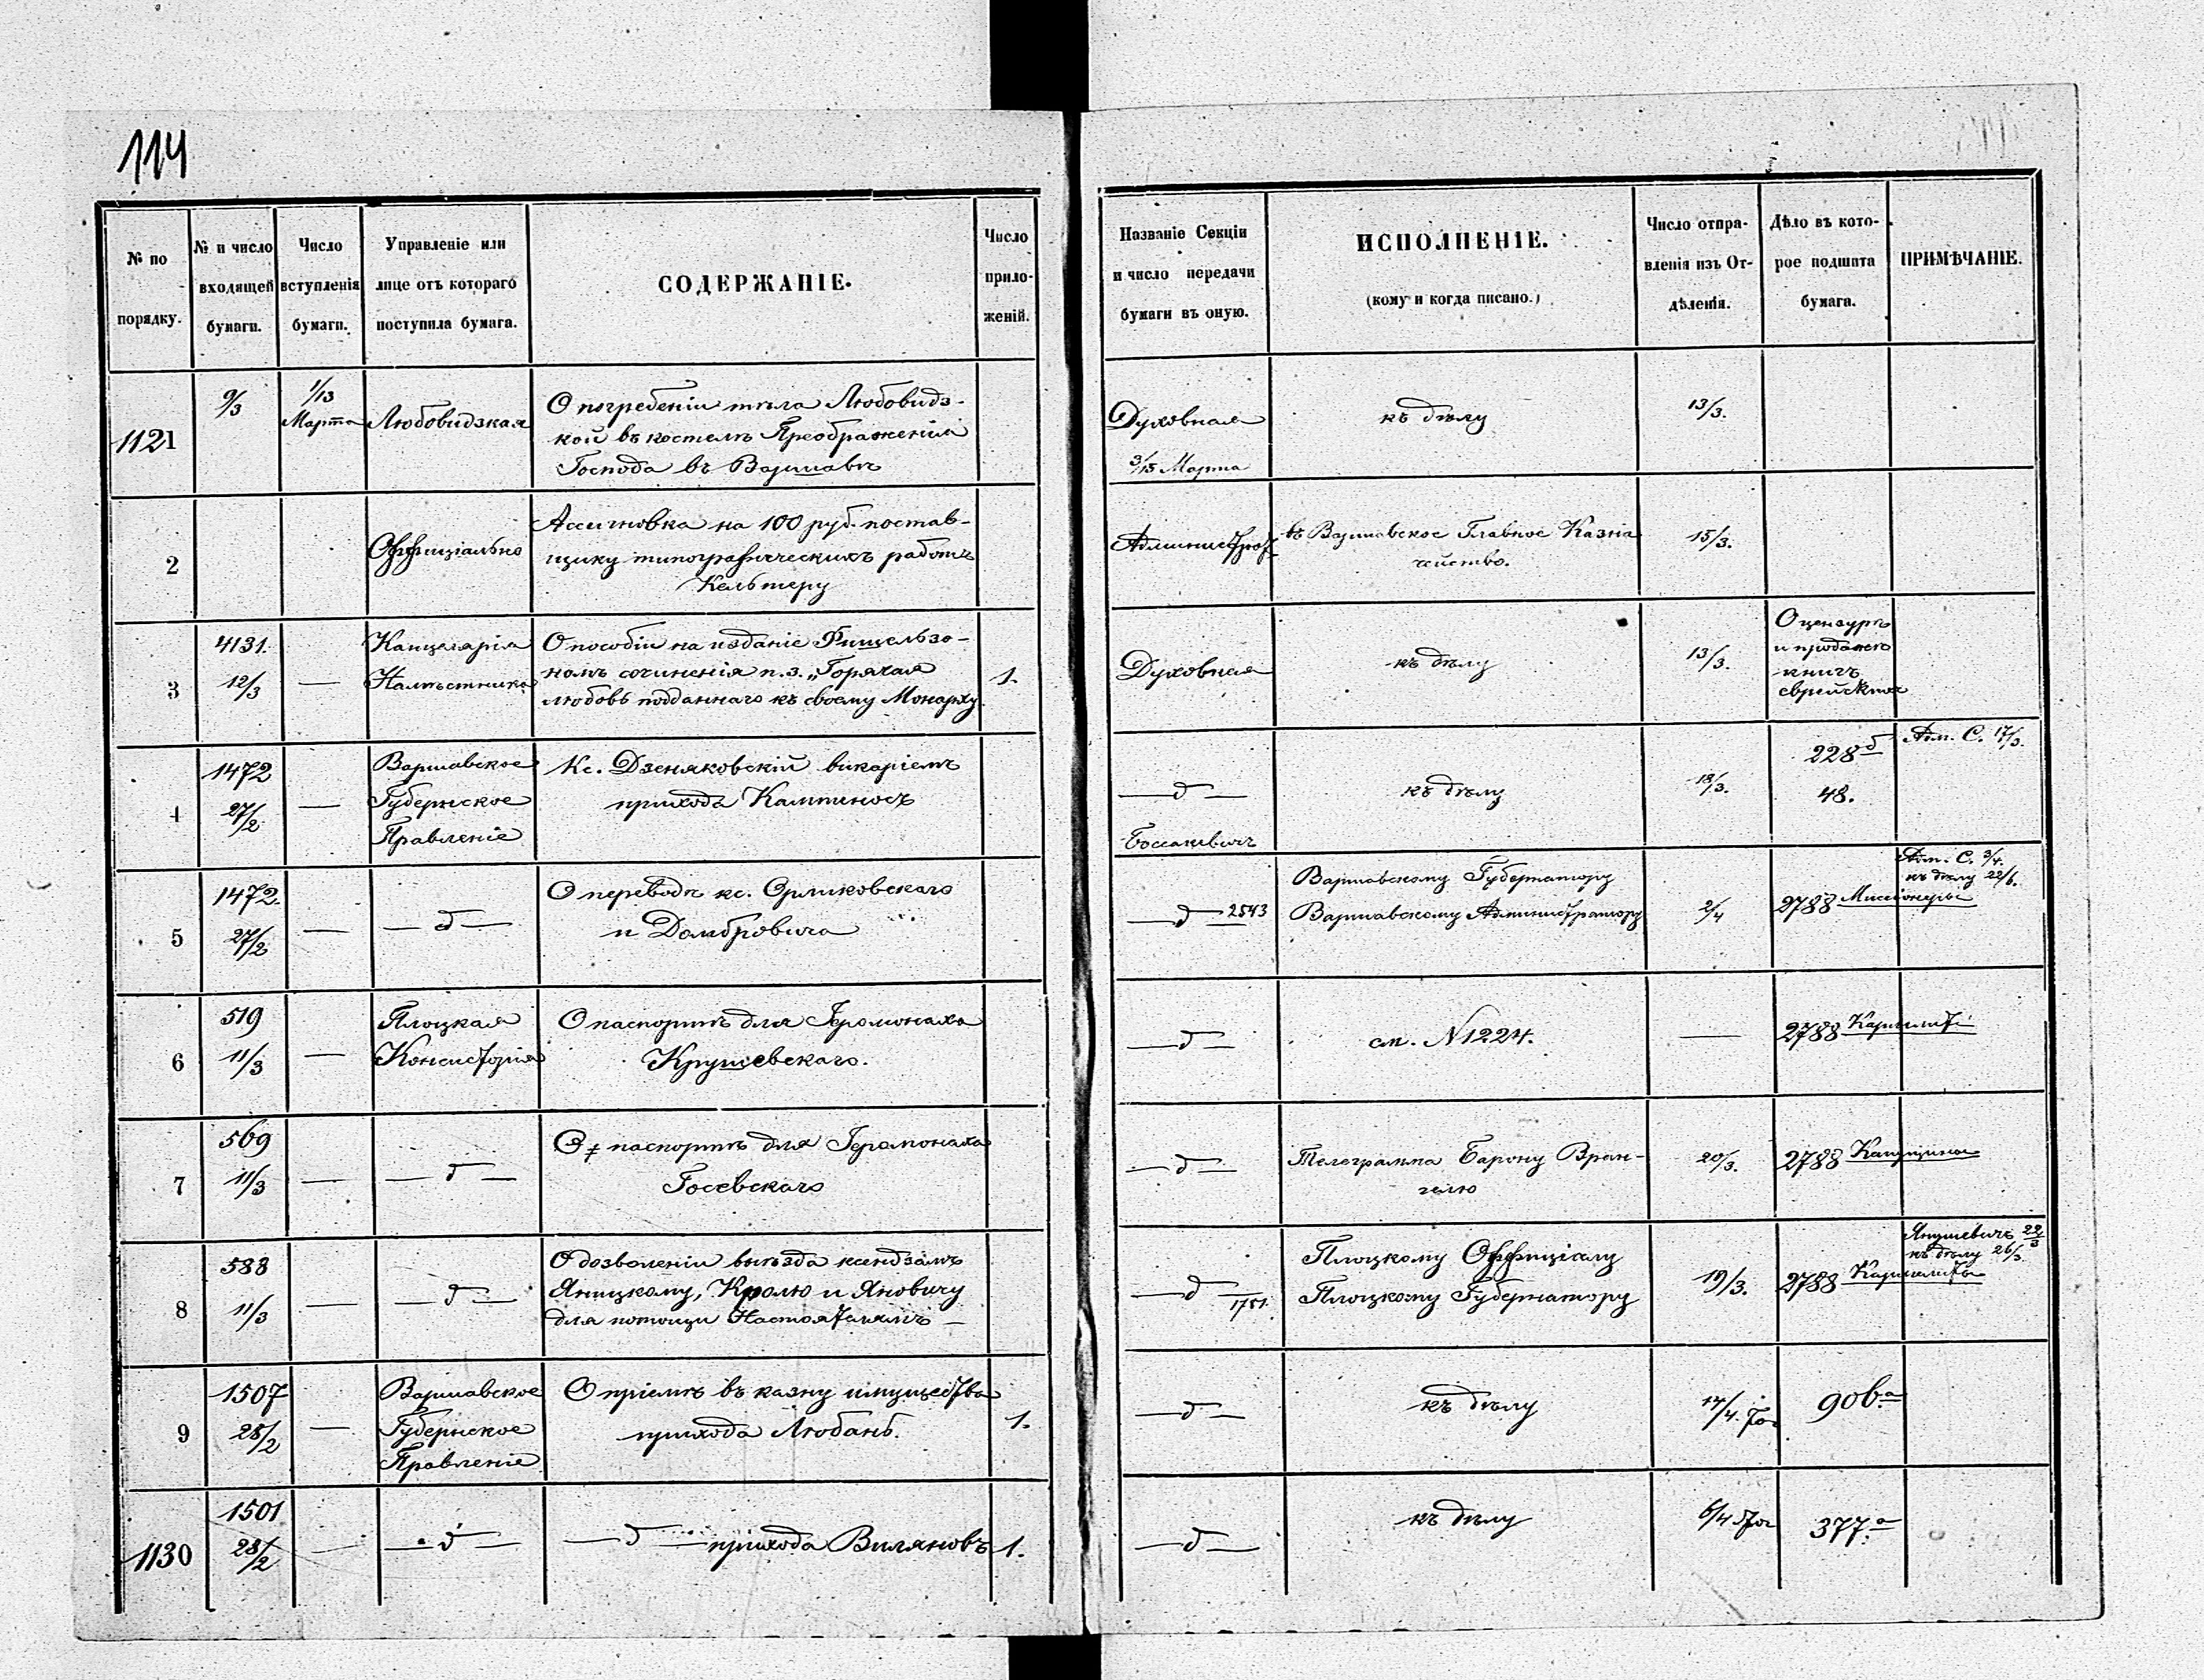 114
№ по порядку.
№ и число входящей бумаги.
Число вступленія бумаги.
Управленіе или лице отъ котораго поступила бумага.
СОДЕРЖАНІЕ.
Число приложеній.
Названіе Секціи и число передачи бумаги въ оную.
ИСПОЛНЕНІЕ.
(кому и когда писано.)
Число отправленія изъ Отдѣленія.
Дѣло въ которое подшита бумага.
ПРИМѢЧАНІЕ.
1121
9/3
1/13 Марта
Любовидзкая
О погребеніи тѣла Любовидз-
кой въ костелѣ Преображенія
Господа въ Варшавѣ
Духовная
3/15 Марта
къ дѣлу
13/3.
2
Оффиціально
Ассигновка на 100 руб. постав-
щику типографическихъ работъ
Кельтеру
въ Варшавское Главное Казна
чейство.
15/3.
3
4131.
12/3
—
Канцелярія
Намѣстника
О пособіи на изданіе Фишельзо-
номъ сочиненія п.з. „Горячая
любовь подданнаго къ своему Монарху
1.
Духовная
къ дѣлу
13/3.
О цензурѣ
и продажѣ
книгъ
еврейскихъ
4
1472
27/2
—
Варшавское
Губернское
Правленіе
Кс. Дзеняковскій викаріемъ
прихода Кампиносъ
— д —
къ дѣлу
18/3.
228 б
48.
Адм. С. 17/3.
5
1472.
27/2
—
— д —
О переводѣ кс.
и Домбровича
— д — 2543
Варшавскому Губернатору
Варшавскому Администратору
2/4
2788 Миссіонеры
Адм. С. 3/4.
къ дѣлу 22/6.
6
519
11/3
—
Плоцкая
Консисторія
О паспортѣ для Іеромонаха
Крушевскаго.
— д —
см. N 1224.
—
2788
7
569
11/3
—
— д —
О паспортѣ для Іеромонаха
Госевскаго
— д —
Телеграмма Барону Вран-
гелю
20/3.
2788 Капуцины
8
588
11/3
—
— д —
О дозволеніи выѣзда ксендзамъ
Яницкому, Кролю и Яновичу
для помощи Настоятелямъ —
— д —
1751.
Плоцкому Оффиціалу
Плоцкому Губернатору
19/3.
2788 Кармелиты
Янушевичъ 22/3
къ дѣлу 26/3.
9
1507
28/2
—
Варшавское
Губернское
Правленіе
О пріемѣ въ казну имущества
прихода Любань.
1.
— д —
къ дѣлу
14/4.
90
1130
1501
28/2
—
— д —
— д — прихода Виляновъ
1.
— д —
къ дѣлу
6/4
377.а